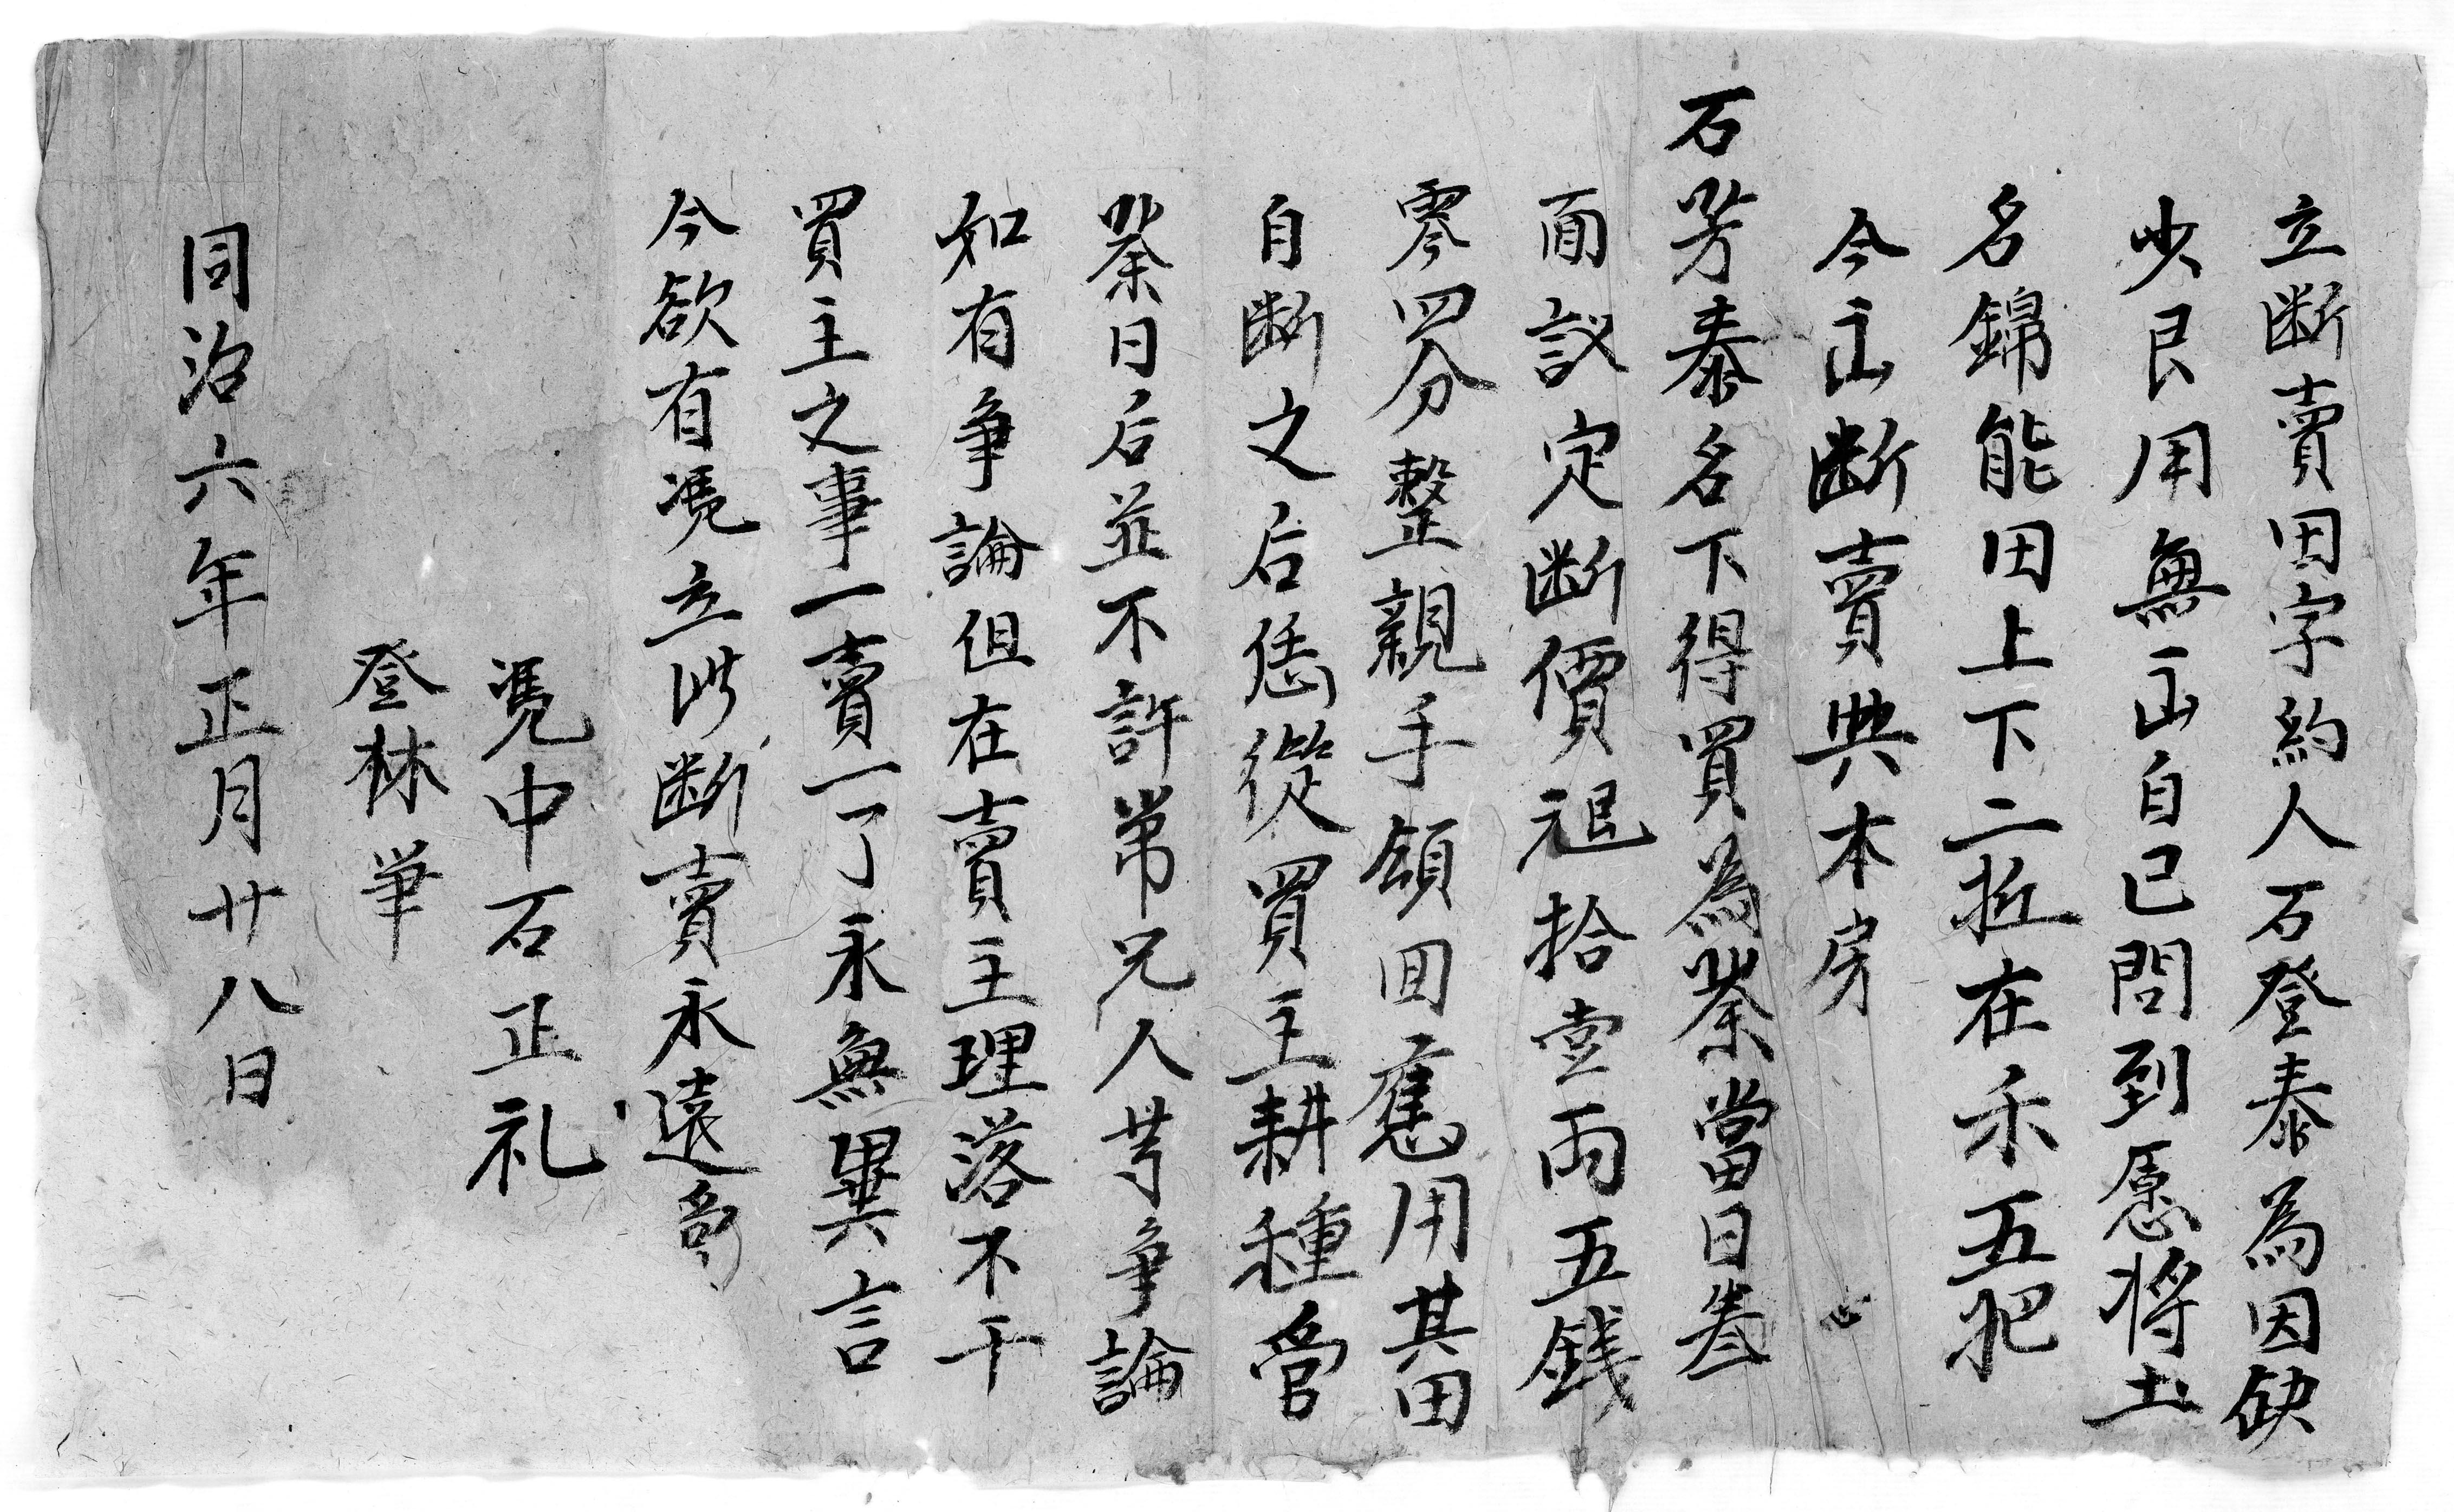 立断賣田字約人石登泰為因缺
少艮用無山自己問到愿將土
名錦能田上下二坵在禾五把
今山断賣典本房
石芳泰名下得買為業當日叁
面議定断價𥘵拾壹両五錢
零四分整親手領回應用其田
自断之后恁從買主耕種管
業日后並不許弟兄人等爭論
如有爭論但在賣主理落不干
買主之事一賣一了永無異言
今欲有馮立此断賣永遠
馮中石正礼
登林筆
同治六年正月廿八日